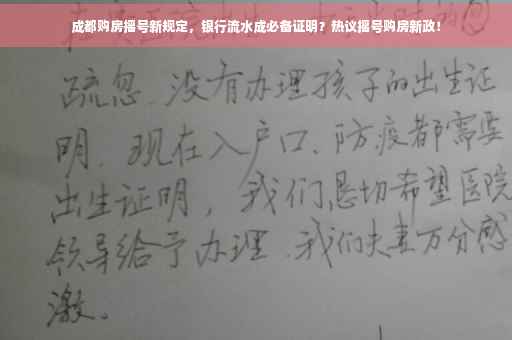 成都购房摇号新规定，银行流水成必备证明？热议摇号购房新政！
疏忽、没有办理孩子的出生证
明、现在入户口、防疫都需要
出生证明，我们恳切希望医院
领导给予办理、我们夫妻万分感
激。